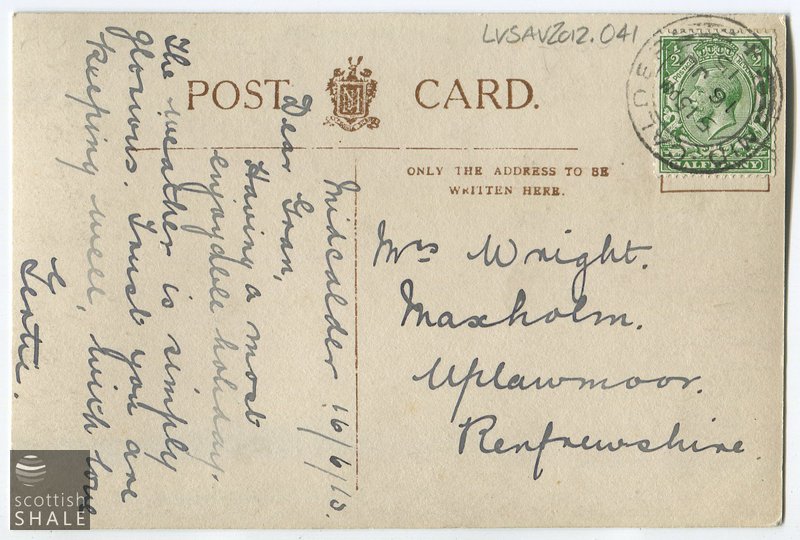 LVSAV2012.041
POST CARD.
ONLY THE ADDRESS TO BE
WRITTEN HERE.
HALFPENNY
Midcalder 16/6/15.
Dear Gran,
Having a most
enjoyable holiday.
The weather is simply
glorious. Trust you are
keeping well, with love
Gertie.
Mrs Wright.
Maxholm.
Uplawmoor.
Renfrewshire.
scottish
SHALE